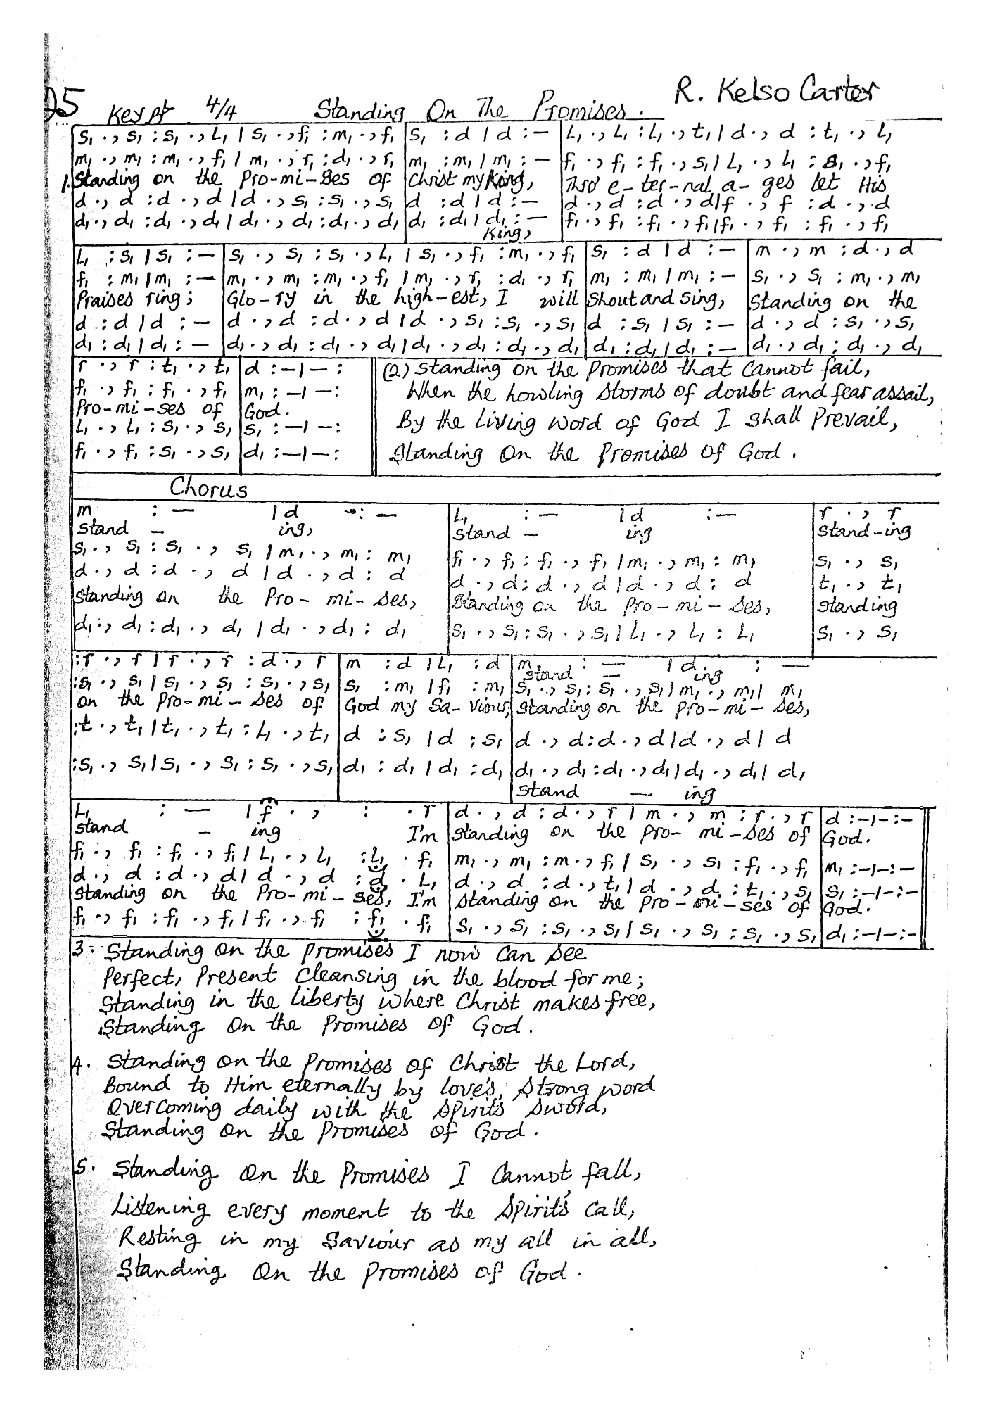 25 Key A# 4/4 Standing On The Promises. R. Kelso Carter
s₁ ., s₁ : s₁ ., l₁ | s₁ ., f₁ : m₁ ., f₁ | s₁ : d | d : – | l₁ ., l₁ : l₁ ., t₁ | d ., d : t₁ ., l₁
m₁ ., m₁ : m₁ ., f₁ | m₁ ., r₁ : d₁ ., r₁ | m₁ : m₁ | m₁ : – | f₁ ., f₁ : f₁ ., s₁ | l₁ ., l₁ : s₁ ., f₁
1. Standing on the Pro-mi-ses of Christ my King, Thro' e-ter-nal a-ges let His
d ., d : d ., d | d ., s₁ : s₁ ., s₁ | d : d | d : – | d ., d : d ., d | f ., f : d ., d
d₁ ., d₁ : d₁ ., d₁ | d₁ ., d₁ : d₁ ., d₁ | d₁ : d₁ | d₁ : – | f₁ ., f₁ : f₁ ., f₁ | f₁ ., f₁ : f₁ ., f₁
King,
l₁ : s₁ | s₁ : – | s₁ ., s₁ : s₁ ., l₁ | s₁ ., f₁ : m₁ ., f₁ | s₁ : d | d : – | m ., m : d ., d
f₁ : m₁ | m₁ : – | m₁ ., m₁ : m₁ ., f₁ | m₁ ., r₁ : d₁ ., r₁ | m₁ : m₁ | m₁ : – | s₁ ., s₁ : m₁ ., m₁
Praises ring; Glo-ry in the high-est, I will Shout and Sing, Standing on the
d : d | d : – | d ., d : d ., d | d ., s₁ : s₁ ., s₁ | d : s₁ | s₁ : – | d ., d : s₁ ., s₁
d₁ : d₁ | d₁ : – | d₁ ., d₁ : d₁ ., d₁ | d₁ ., d₁ : d₁ ., d₁ | d₁ : d₁ | d₁ : – | d₁ ., d₁ : d₁ ., d₁
r ., r : t₁ ., t₁ | d : – | – :
f₁ ., f₁ : f₁ ., f₁ | m₁ : – | – :
Pro-mi-ses of God.
l₁ ., l₁ : s₁ ., s₁ | s₁ : – | – :
f₁ ., f₁ : s₁ ., s₁ | d₁ : – | – :
(2) Standing on the Promises that Cannot fail,
When the howling Storms of doubt and fear assail,
By the Living Word of God I shall Prevail,
Standing On the Promises of God.
Chorus
m : – | d : – | l₁ : – | d : – | r ., r
Stand – ing, Stand – ing Stand-ing
s₁ ., s₁ : s₁ ., s₁ | m₁ ., m₁ : m₁ | f₁ ., f₁ : f₁ ., f₁ | m₁ ., m₁ : m₁ | s₁ ., s₁
d ., d : d ., d | d ., d : d | d ., d : d ., d | d ., d : d | t₁ ., t₁
Standing on the Pro-mi-ses, Standing on the Pro-mi-ses, Standing
d₁ ., d₁ : d₁ ., d₁ | d₁ ., d₁ : d₁ | s₁ ., s₁ : s₁ ., s₁ | l₁ ., l₁ : l₁ | s₁ ., s₁
: r ., r | r ., r : d ., r | m : d | l₁ : d | m, : – | d : –
Stand – ing
: s₁ ., s₁ | s₁ ., s₁ : s₁ ., s₁ | s₁ : m₁ | f₁ : m₁ | s₁ ., s₁ : s₁ ., s₁ | m₁ ., m₁ | m₁
on the Pro-mi-ses of God my Sa-viour, Standing on the Pro-mi-ses,
: t₁ ., t₁ | t₁ ., t₁ : l₁ ., t₁ | d : s₁ | d : s₁ | d ., d : d ., d | d ., d | d
: s₁ ., s₁ | s₁ ., s₁ : s₁ ., s₁ | d₁ : d₁ | d₁ : d₁ | d₁ ., d₁ : d₁ ., d₁ | d₁ ., d₁ | d₁
Stand – ing
l₁ : – | f ., : . r | d ., d : d ., r | m ., m : r ., r | d : – | – : –
Stand – ing I'm Standing on the Pro-mi-ses of God.
f₁ ., f₁ : f₁ ., f₁ | l₁ ., l₁ : l₁ . f₁ | m₁ ., m₁ : m ., f₁ | s₁ ., s₁ : f₁ ., f₁ | m₁ : – | – : –
d ., d : d ., d | d ., d : d . l₁ | d ., d : d ., t₁ | d ., d : t₁ ., s₁ | s₁ : – | – : –
Standing on the Pro-mi-ses, I'm Standing on the Pro-mi-ses of God.
f₁ ., f₁ : f₁ ., f₁ | f₁ ., f₁ : f₁ . f₁ | s₁ ., s₁ : s₁ ., s₁ | s₁ ., s₁ : s₁ ., s₁ | d₁ : – | – : –
3. Standing On the Promises I now Can See
Perfect, Present Cleansing in the blood for me;
Standing in the Liberty where Christ makes free,
Standing On the Promises of God.
4. Standing on the Promises of Christ the Lord,
Bound to Him eternally by love's, Strong word
Overcoming daily with the Spirit's Sword,
Standing On the Promises of God.
5. Standing On the Promises I Cannot fall,
Listening every moment to the Spirit's Call,
Resting in my Saviour as my all in all,
Standing On the Promises of God.